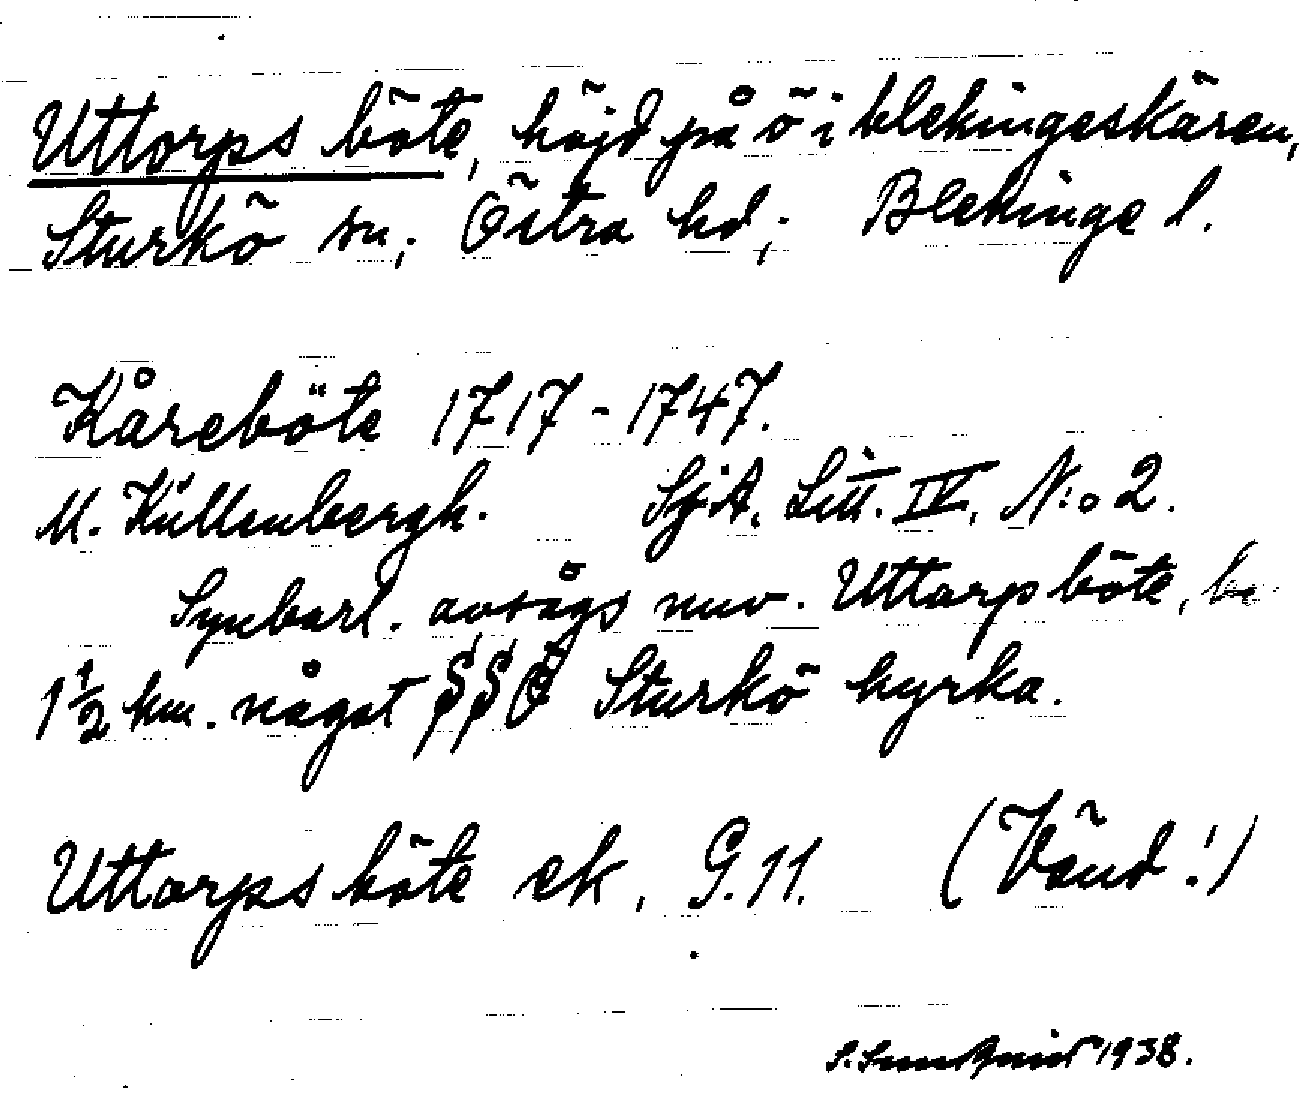 Uttorps böte, höjd på ö i blekingeskären,
Sturkö sn, Östra hd, Blekinge l.
Kåreböte 1717-1747.
M. Küllenbergh. SjA. Litt. IV, N:o 2.
Synbarl. avságs nuv. Uttorpböte,
1 1/2 km. något SSÖ Sturkö kyrka.
Uttorps böte ek, G.11. (Vänd!)
S. Sundquist 1938.